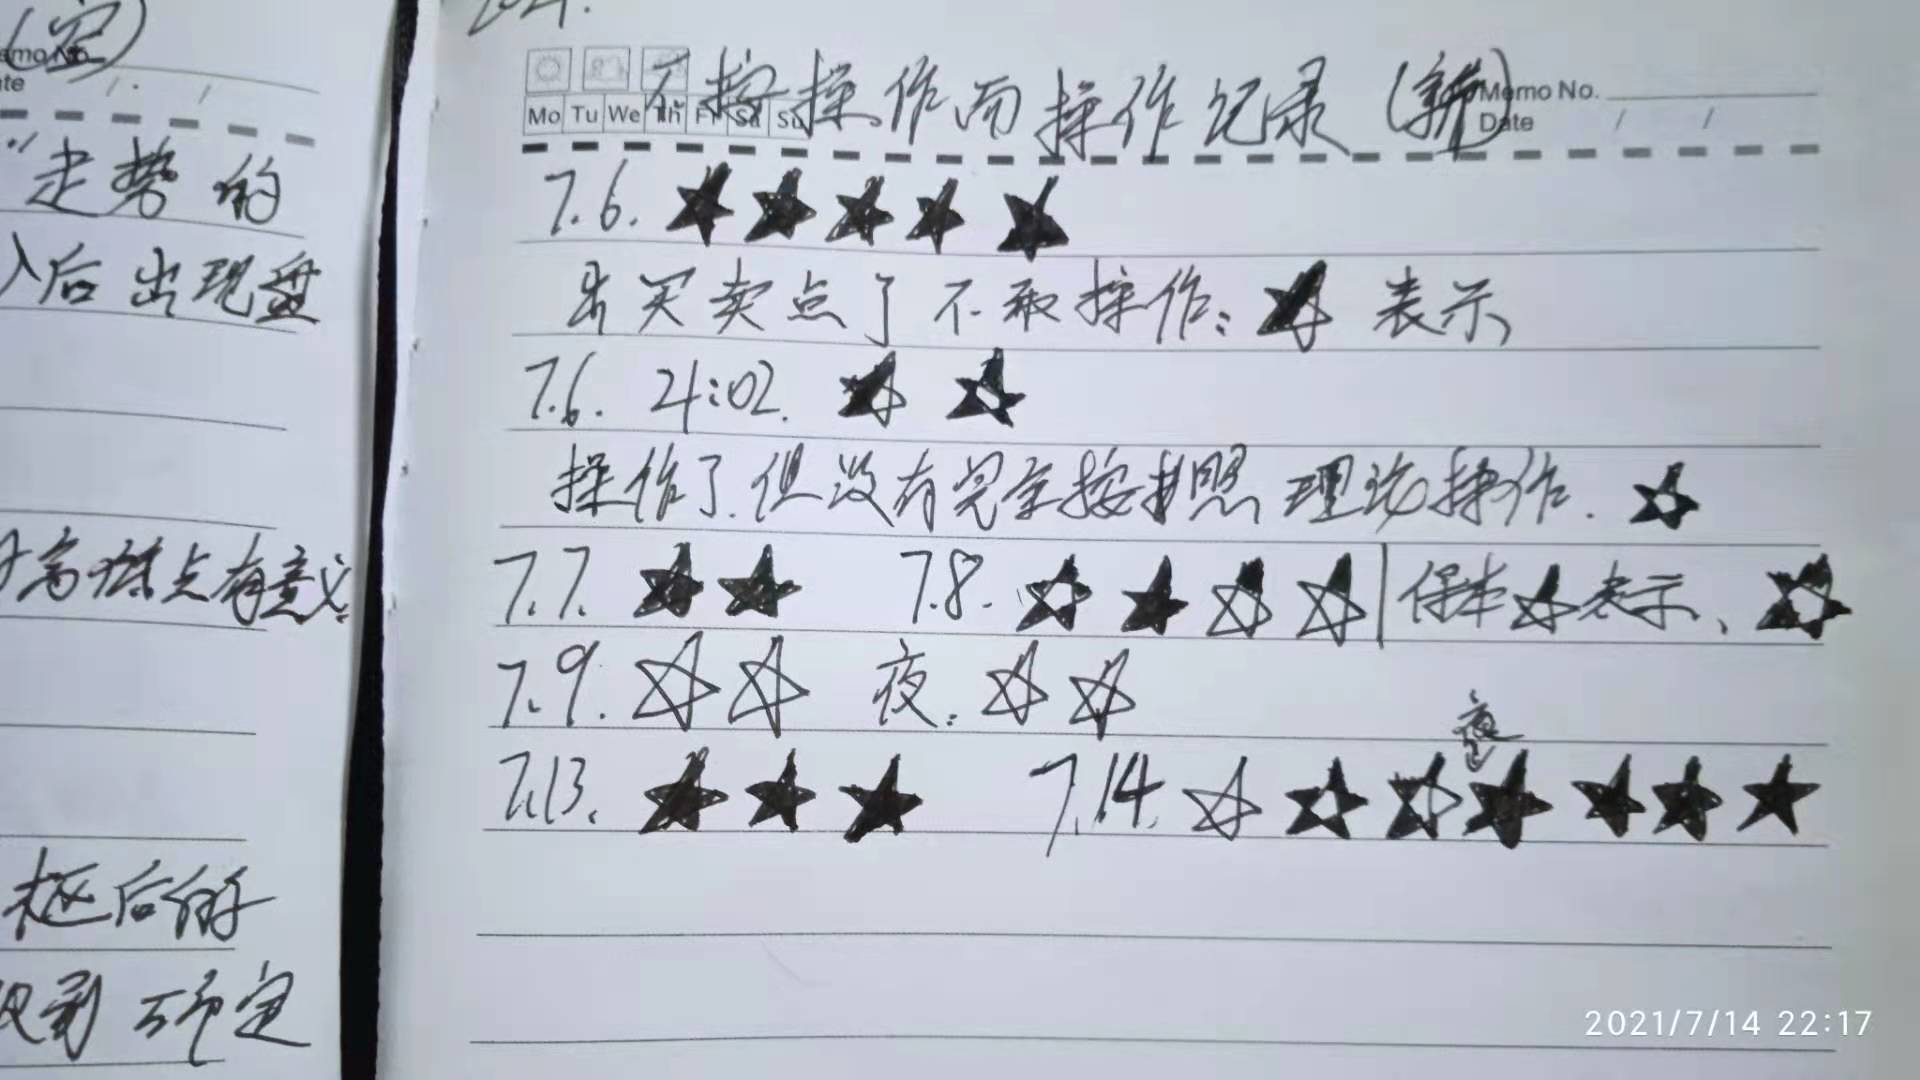 (空)
emo No.
te
"走势的
入后出现盘
高低点有意义.
枢后的
确定
2021.
Mo Tu We Th Fr Sa Su
不按操作而操作记录(新)
Memo No.
Date / /
7.6. ★ ★ ★ ★ ★
出买卖点了不敢操作: ★ 表示
7.6. 21:02. ★ ★
操作了.但没有完全按照理论操作. ☆
7.7. ★ ★ 7.8. ☆ ★ ☆ ☆ | 保本 ☆ 表示、 ☆
7.9. ☆ ☆ 夜: ☆ ☆
夜
7.13. ★ ★ ★ 7.14. ☆ ☆ ☆ ★ ★ ★ ★
2021/7/14 22:17